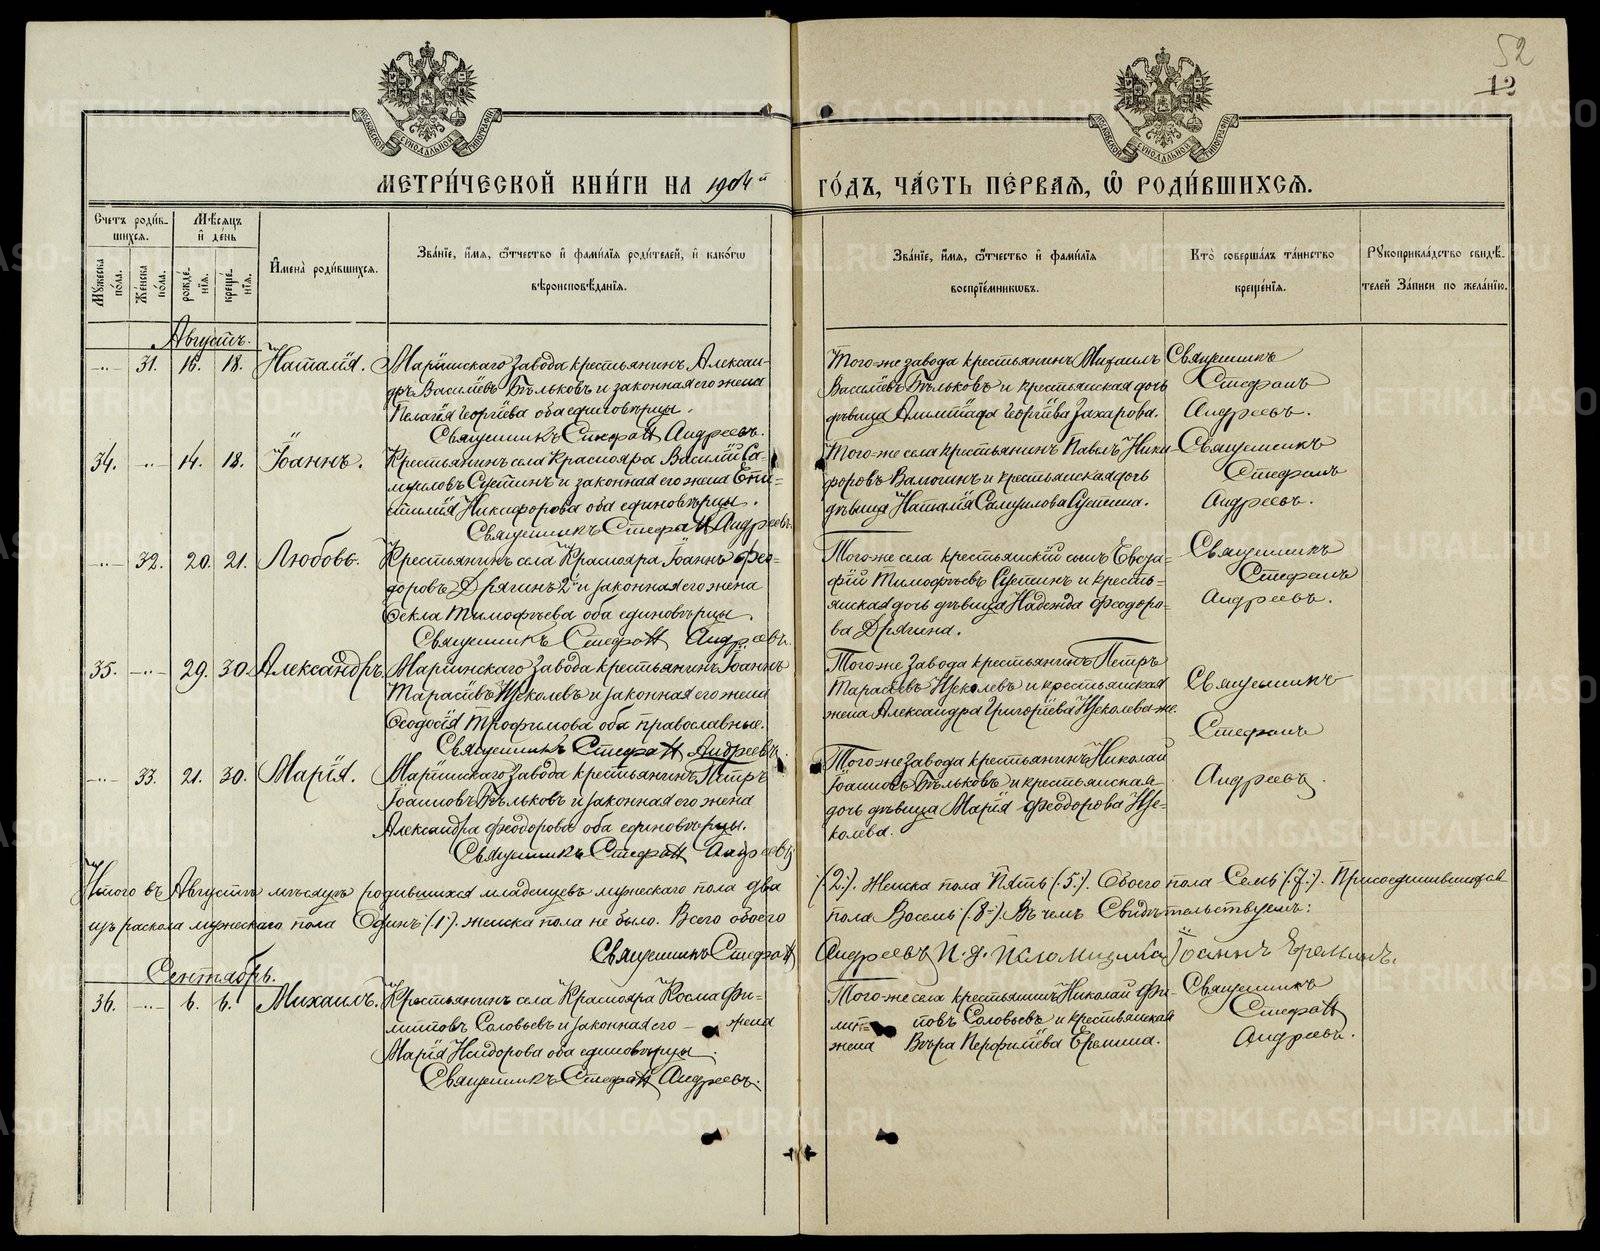 52
12
МЕТРИ́ЧЕСКОЙ КНИ́ГИ НА 1904й ГО́ДЪ, ЧА́СТЬ ПЕ́РВАѦ, Ѡ РОДИ́ВШИХСѦ.
Счетъ роди́вшихсѧ.
Мѣ́сѧцъ и де́нь
Мꙋжеска по́ла.
Же́нска по́ла.
рожде́нїѧ.
креще́нїѧ.
И҆мена̀ роди́вшихсѧ.
Зва́нїе, и҆́мѧ, ѻ҆́тчество и҆ фамѝлїѧ роди́телей, и҆ како́гѡ
вѣроисповѣ́данїѧ.
Зва́нїе, и҆́мѧ, ѻ҆́тчество и҆ фамѝлїѧ
воспрїе́мникѡвъ.
Кто̀ соверша́лъ та́инство
креще́нїѧ.
Рꙋкоприкла́дство свидѣ́телей за́писи по жела́нїю.
Августъ.
-„- 31. 16. 18. Наталія. Маріинскаго завода крестьянинъ Александръ Васильевъ Бѣльковъ и законная его жена
Пелагія Георгіева оба единовѣрцы.
Священникъ Стефанъ Андреевъ.
Того-же завода крестьянинъ Михаилъ
Васильевъ Бѣльковъ и крестьянская дочь
дѣвица Георгіева Захарова.
Священникъ
Стефанъ
Андреевъ.
34. -„- 14. 18. Іоаннъ. Крестьянинъ села Краснояра Василій Самуиловъ Сустинъ и законная его жена
Никифорова оба единовѣрцы.
Священникъ Стефанъ Андреевъ.
Того-же села крестьянинъ Павелъ Никифоровъ и крестьянская дочь
дѣвица Наталія Самуилова Сустина.
Священникъ
Стефанъ
Андреевъ.
-„- 32. 20. 21. Любовь. Крестьянинъ села Краснояра Іоаннъ Феодоровъ Дрягинъ 2й и законная его жена
Фекла Тимофѣева оба единовѣрцы.
Священникъ Стефанъ Андреевъ.
Того-же села крестьянскій сынъ
Тимофѣевъ Сустинъ и крестьянская дочь дѣвица Надежда Феодорова Дрягина.
Священникъ
Стефанъ
Андреевъ.
35. -„- 29. 30. Александръ. Маріинскаго завода крестьянинъ Іоаннъ
Тарасіевъ Щеколевъ и законная его жена
Феодосія Трофимова оба православные.
Священникъ Стефанъ Андреевъ.
Того-же завода крестьянинъ Петръ
Тарасіевъ Щеколевъ и крестьянская
жена Александра Григоріева Щеколева-же.
Священникъ
Стефанъ
Андреевъ.
-„- 33. 21. 30. Марія. Маріинскаго завода крестьянинъ Петръ
Іоанновъ Бѣльковъ и законная его жена
Александра Феодорова оба единовѣрцы.
Священникъ Стефанъ Андреевъ
Того-же завода крестьянинъ Николай
Іоанновъ Бѣльковъ и крестьянская
дочь дѣвица Марія Феодорова Щеколева.
Итого въ Августѣ мѣсяцѣ родившихся младенцевъ мужескаго пола два (:2:). Женска пола Пять (:5:). Обоего пола Семь (:7:). Присоединившихся
изъ раскола мужескаго пола Одинъ (:1:). женска пола не было. Всего обоего пола Восемь (:8:). Въ чемъ Свидѣтельствуемъ:
Священникъ Стефанъ Андреевъ И. д. Псаломщика Іоаннъ Еремпинъ.
Сентябрь.
36. -„- 6. 6. Михаилъ. Крестьянинъ села Краснояра Косма Филипповъ Соловьевъ и законная его жена
Марія Исидорова оба единовѣрцы.
Священникъ Стефанъ Андреевъ.
Того-же села крестьянинъ Николай Филипповъ Соловьевъ и крестьянская
жена Вѣра Перфиліева Еремина.
Священникъ
Стефанъ
Андреевъ.
METRIKI.GASO-URAL.RU